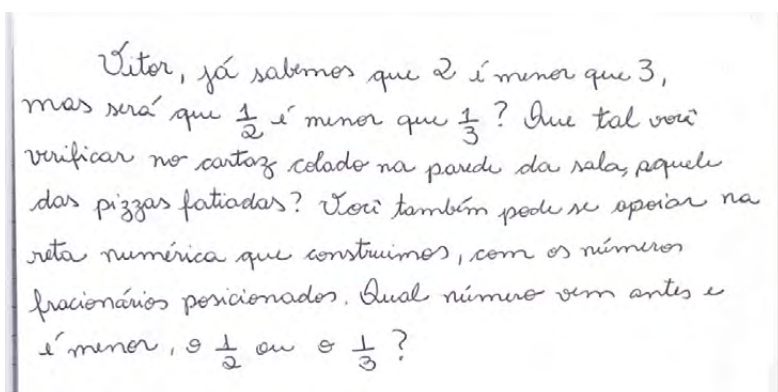 Vitor, já sabemos que 2 é menor que 3,
mas será que 1/2 é menor que 1/3? Que tal você
verificar no cartaz colado na parede da sala, aquele
das pizzas fatiadas? Você também pode se apoiar na
reta numérica que construimos, com os números
fracionários posicionados. Qual número vem antes e
é menor, o 1/2 ou o 1/3?